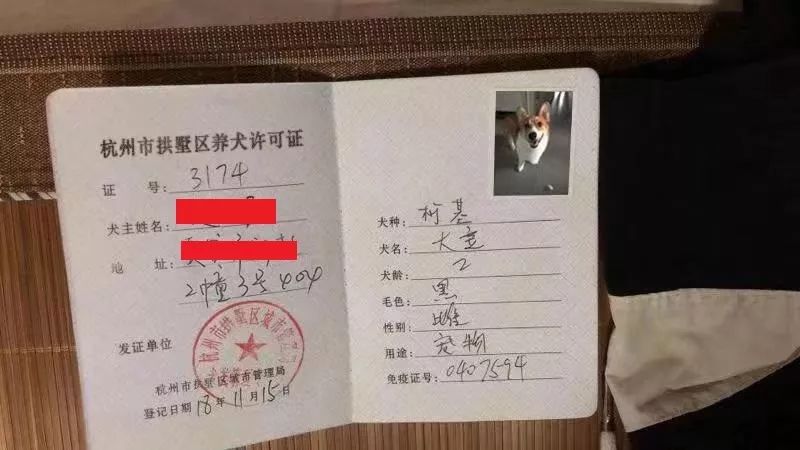 杭州市拱墅区养犬许可证
证 号: 3174
犬主姓名:
地 址:
2幢3号404
发证单位
杭州市拱墅区城市管
杭州市拱墅区城市管理局
登记日期 18年11月15日
犬种: 柯基
犬名: 大宝
犬龄: 2
毛色: 黑
性别: 雌
用途: 宠物
免疫证号: 0407594